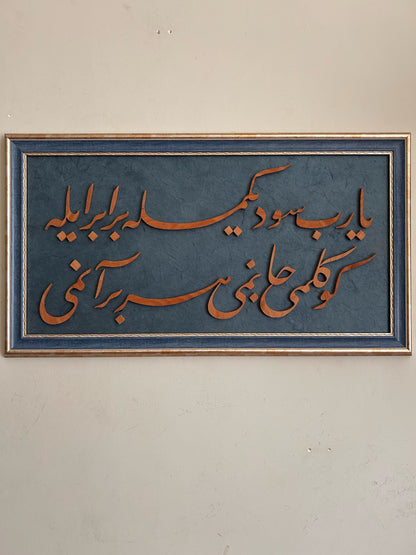 یارب سودیکمله برابر ایله
کوکلمی جانمی هر بر آنمی